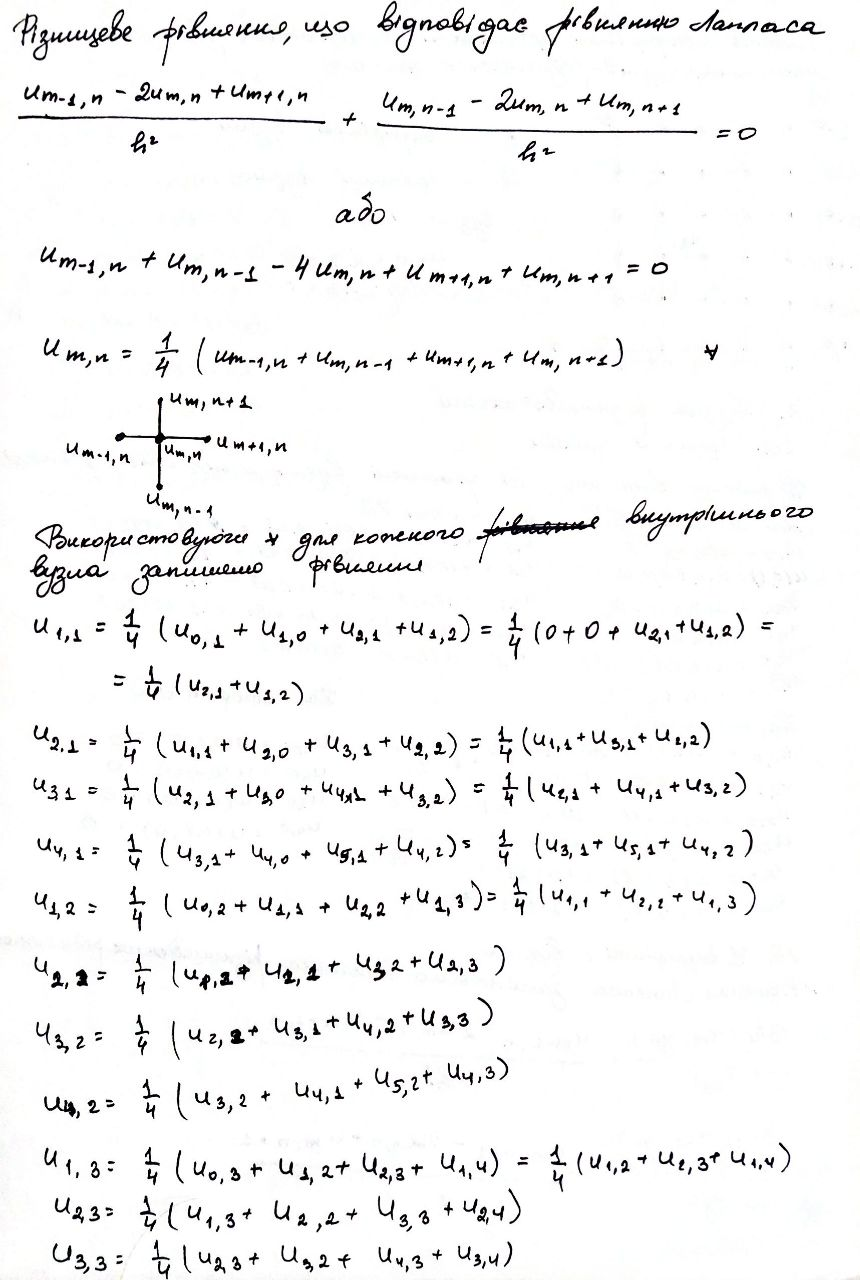 Різницеве рівняння, що відповідає рівнянню Лапласа
(u_{m-1,n} - 2u_{m,n} + u_{m+1,n})/h² + (u_{m,n-1} - 2u_{m,n} + u_{m,n+1})/h² = 0
або
u_{m-1,n} + u_{m,n-1} - 4u_{m,n} + u_{m+1,n} + u_{m,n+1} = 0
u_{m,n} = 1/4 (u_{m-1,n} + u_{m,n-1} + u_{m+1,n} + u_{m,n+1}) *
u_{m,n+1}
u_{m-1,n} u_{m,n} u_{m+1,n}
u_{m,n-1}
Використовуючи * для кожного внутрішнього
вузла запишемо рівняння
u_{1,1} = 1/4 (u_{0,1} + u_{1,0} + u_{2,1} + u_{1,2}) = 1/4 (0 + 0 + u_{2,1} + u_{1,2}) =
= 1/4 (u_{2,1} + u_{1,2})
u_{2,1} = 1/4 (u_{1,1} + u_{2,0} + u_{3,1} + u_{2,2}) = 1/4 (u_{1,1} + u_{3,1} + u_{2,2})
u_{3,1} = 1/4 (u_{2,1} + u_{3,0} + u_{4,1} + u_{3,2}) = 1/4 (u_{2,1} + u_{4,1} + u_{3,2})
u_{4,1} = 1/4 (u_{3,1} + u_{4,0} + u_{5,1} + u_{4,2}) = 1/4 (u_{3,1} + u_{5,1} + u_{4,2})
u_{1,2} = 1/4 (u_{0,2} + u_{1,1} + u_{2,2} + u_{1,3}) = 1/4 (u_{1,1} + u_{2,2} + u_{1,3})
u_{2,2} = 1/4 (u_{1,2} + u_{2,1} + u_{3,2} + u_{2,3})
u_{3,2} = 1/4 (u_{2,2} + u_{3,1} + u_{4,2} + u_{3,3})
u_{4,2} = 1/4 (u_{3,2} + u_{4,1} + u_{5,2} + u_{4,3})
u_{1,3} = 1/4 (u_{0,3} + u_{1,2} + u_{2,3} + u_{1,4}) = 1/4 (u_{1,2} + u_{2,3} + u_{1,4})
u_{2,3} = 1/4 (u_{1,3} + u_{2,2} + u_{3,3} + u_{2,4})
u_{3,3} = 1/4 (u_{2,3} + u_{3,2} + u_{4,3} + u_{3,4})